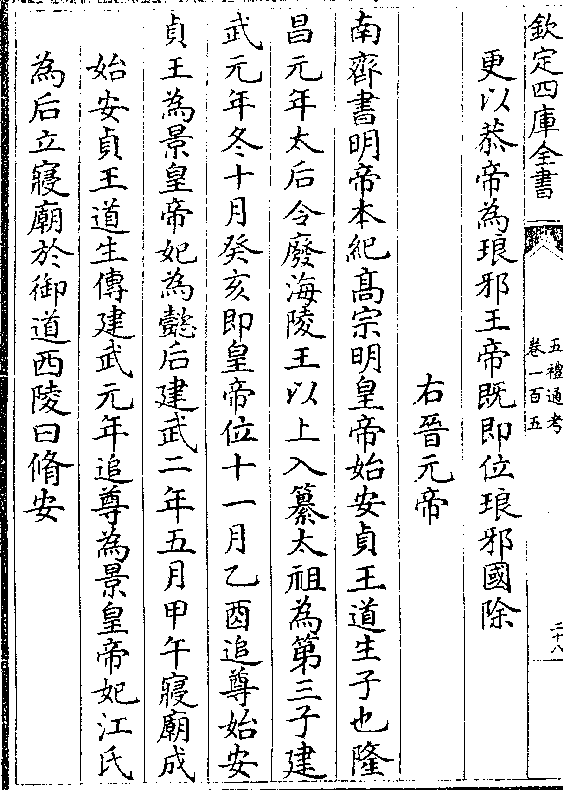 欽定四庫全書
五禮通考
卷一百五
二十八
更以恭帝為琅邪王帝既即位琅邪國除
右晉元帝
南齊書明帝本紀髙宗明皇帝始安貞王道生子也隆
昌元年太后令廢海陵王以上入纂太祖為第三子建
武元年冬十月癸亥即皇帝位十一月乙酉追尊始安
貞王為景皇帝妃為懿后建武二年五月甲午寢廟成
始安貞王道生傳建武元年追尊為景皇帝妃江氏
為后立寢廟於御道西陵曰脩安